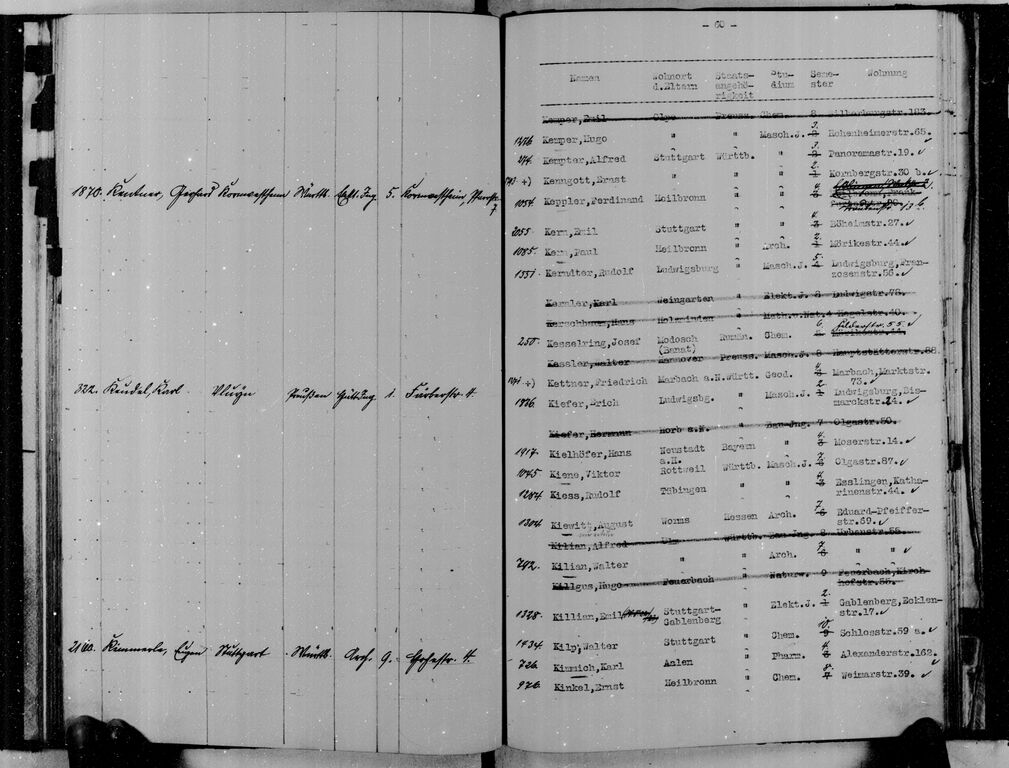 1870. Kentner, Gerhard Kornwestheim Württ. Elekt. Ing. 5. Kornwestheim,
7
322. Keudel, Karl Vluyn Preußen 1. Färberstr. 4.
2160. Kimmerle, Eugen Stuttgart Württ. Arch. 9.
- 60 -
Namen Wohnort Staats- Stu- Seme- Wohnung
d.Eltern angehö- dium ster
rigkeit
Kemper,Emil Olpe Preuss. Chem. 8 Silberburgstr.183.
3.
1476 Kemper,Hugo " " Masch.J. 2 Hohenheimerstr.65.
3.
274. Kempter,Alfred Stuttgart Württb. " 2 Panoramastr.19.
2.
+) Kenngott,Ernst " " " 1 Kornbergstr.30 b.
1054. Keppler,Ferdinand Heilbronn " "
4.
2055. Kern,Emil Stuttgart " " 3 Böheimstr.27.
2.
1085. Kern,Paul Heilbronn " Arch. 1 Mörikestr.44.
5.
1551. Kerndter,Rudolf Ludwigsburg " Masch.J. 4 Ludwigsburg,Fran-
zosenstr.56.
Kernler,Karl Weingarten " Elekt.J. 8 Ludwigstr.73.
Kerschbaum,Hans Holzminden " Math.u.Nat.4 Hegelstr.40.
6. Silberstr. 55.
250. Kesselring,Josef Modosch Rumän. Chem.
(Banat)
Kessler,Walter Hannover Preuss. Masch.J. 8 Hauptstätterstr.88.
4
+) Kettner,Friedrich Marbach a.N. Württ. Geod. 3 Marbach,Marktstr.
73.
2
1926. Kiefer,Erich Ludwigsbg. " Masch.J. 1 Ludwigsburg,Bis-
marckstr.24.
Kiefer,Hermann Horb a.N. " Bau-Ing. 7 Olgastr.50.
4.
1917. Kielhöfer,Hans Neustadt Bayern " 3 Moserstr.14.
a.H.
1045. Kiene,Viktor Rottweil Württb. Masch.J. Olgastr.87.
4
1284. Kiess,Rudolf Tübingen " " 3 Esslingen,Katha-
rinenstr.44.
7.
1304. Kiewitt,August Worms Hessen Arch. 6 Eduard-Pfeiffer-
str.69.
Kilian,Alfred Ulm Württb. Bau-Ing. 8 Urbanstr.55.
792. Kilian,Walter " " Arch. " "
Killgus,Hugo Feuerbach " Naturw. 9 Feuerbach,Kirch
hofstr.55.
2.
1328. Killian,Emil Stuttgart- " Elekt.J. 1 Gablenberg,Ecklen-
Gablenberg str.17.
10.
1434. Kilpp,Walter Stuttgart " Chem. 9 Schlosstr.59 a.
4
726. Kimmich,Karl Aalen " Pharm. 3 Alexanderstr.162.
8.
976. Kinkel,Ernst Heilbronn " Chem. 7 Weimarstr.39.